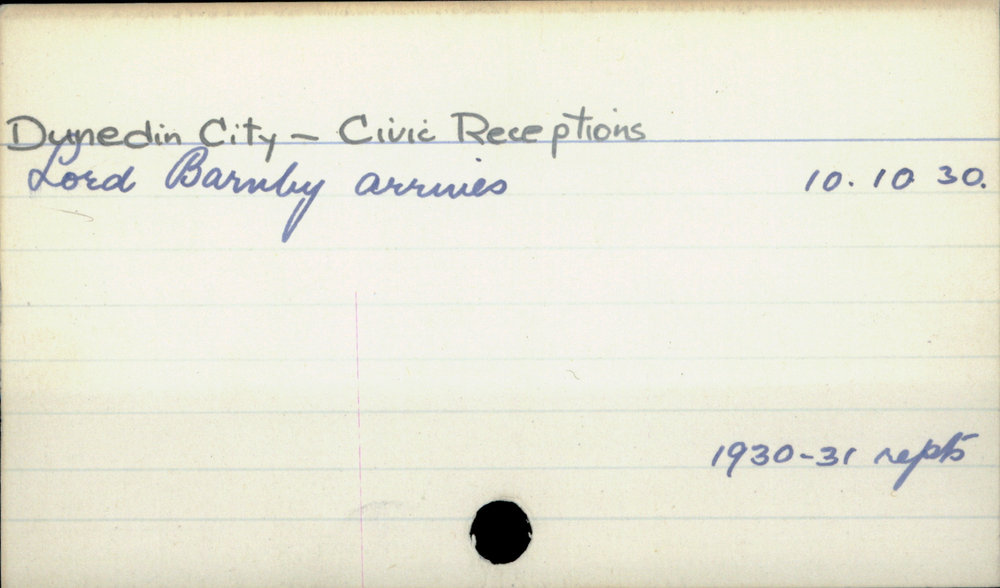 Dunedin City - Civic Receptions
Lord Barnby arrives 10.10 30.
1930-31 repts